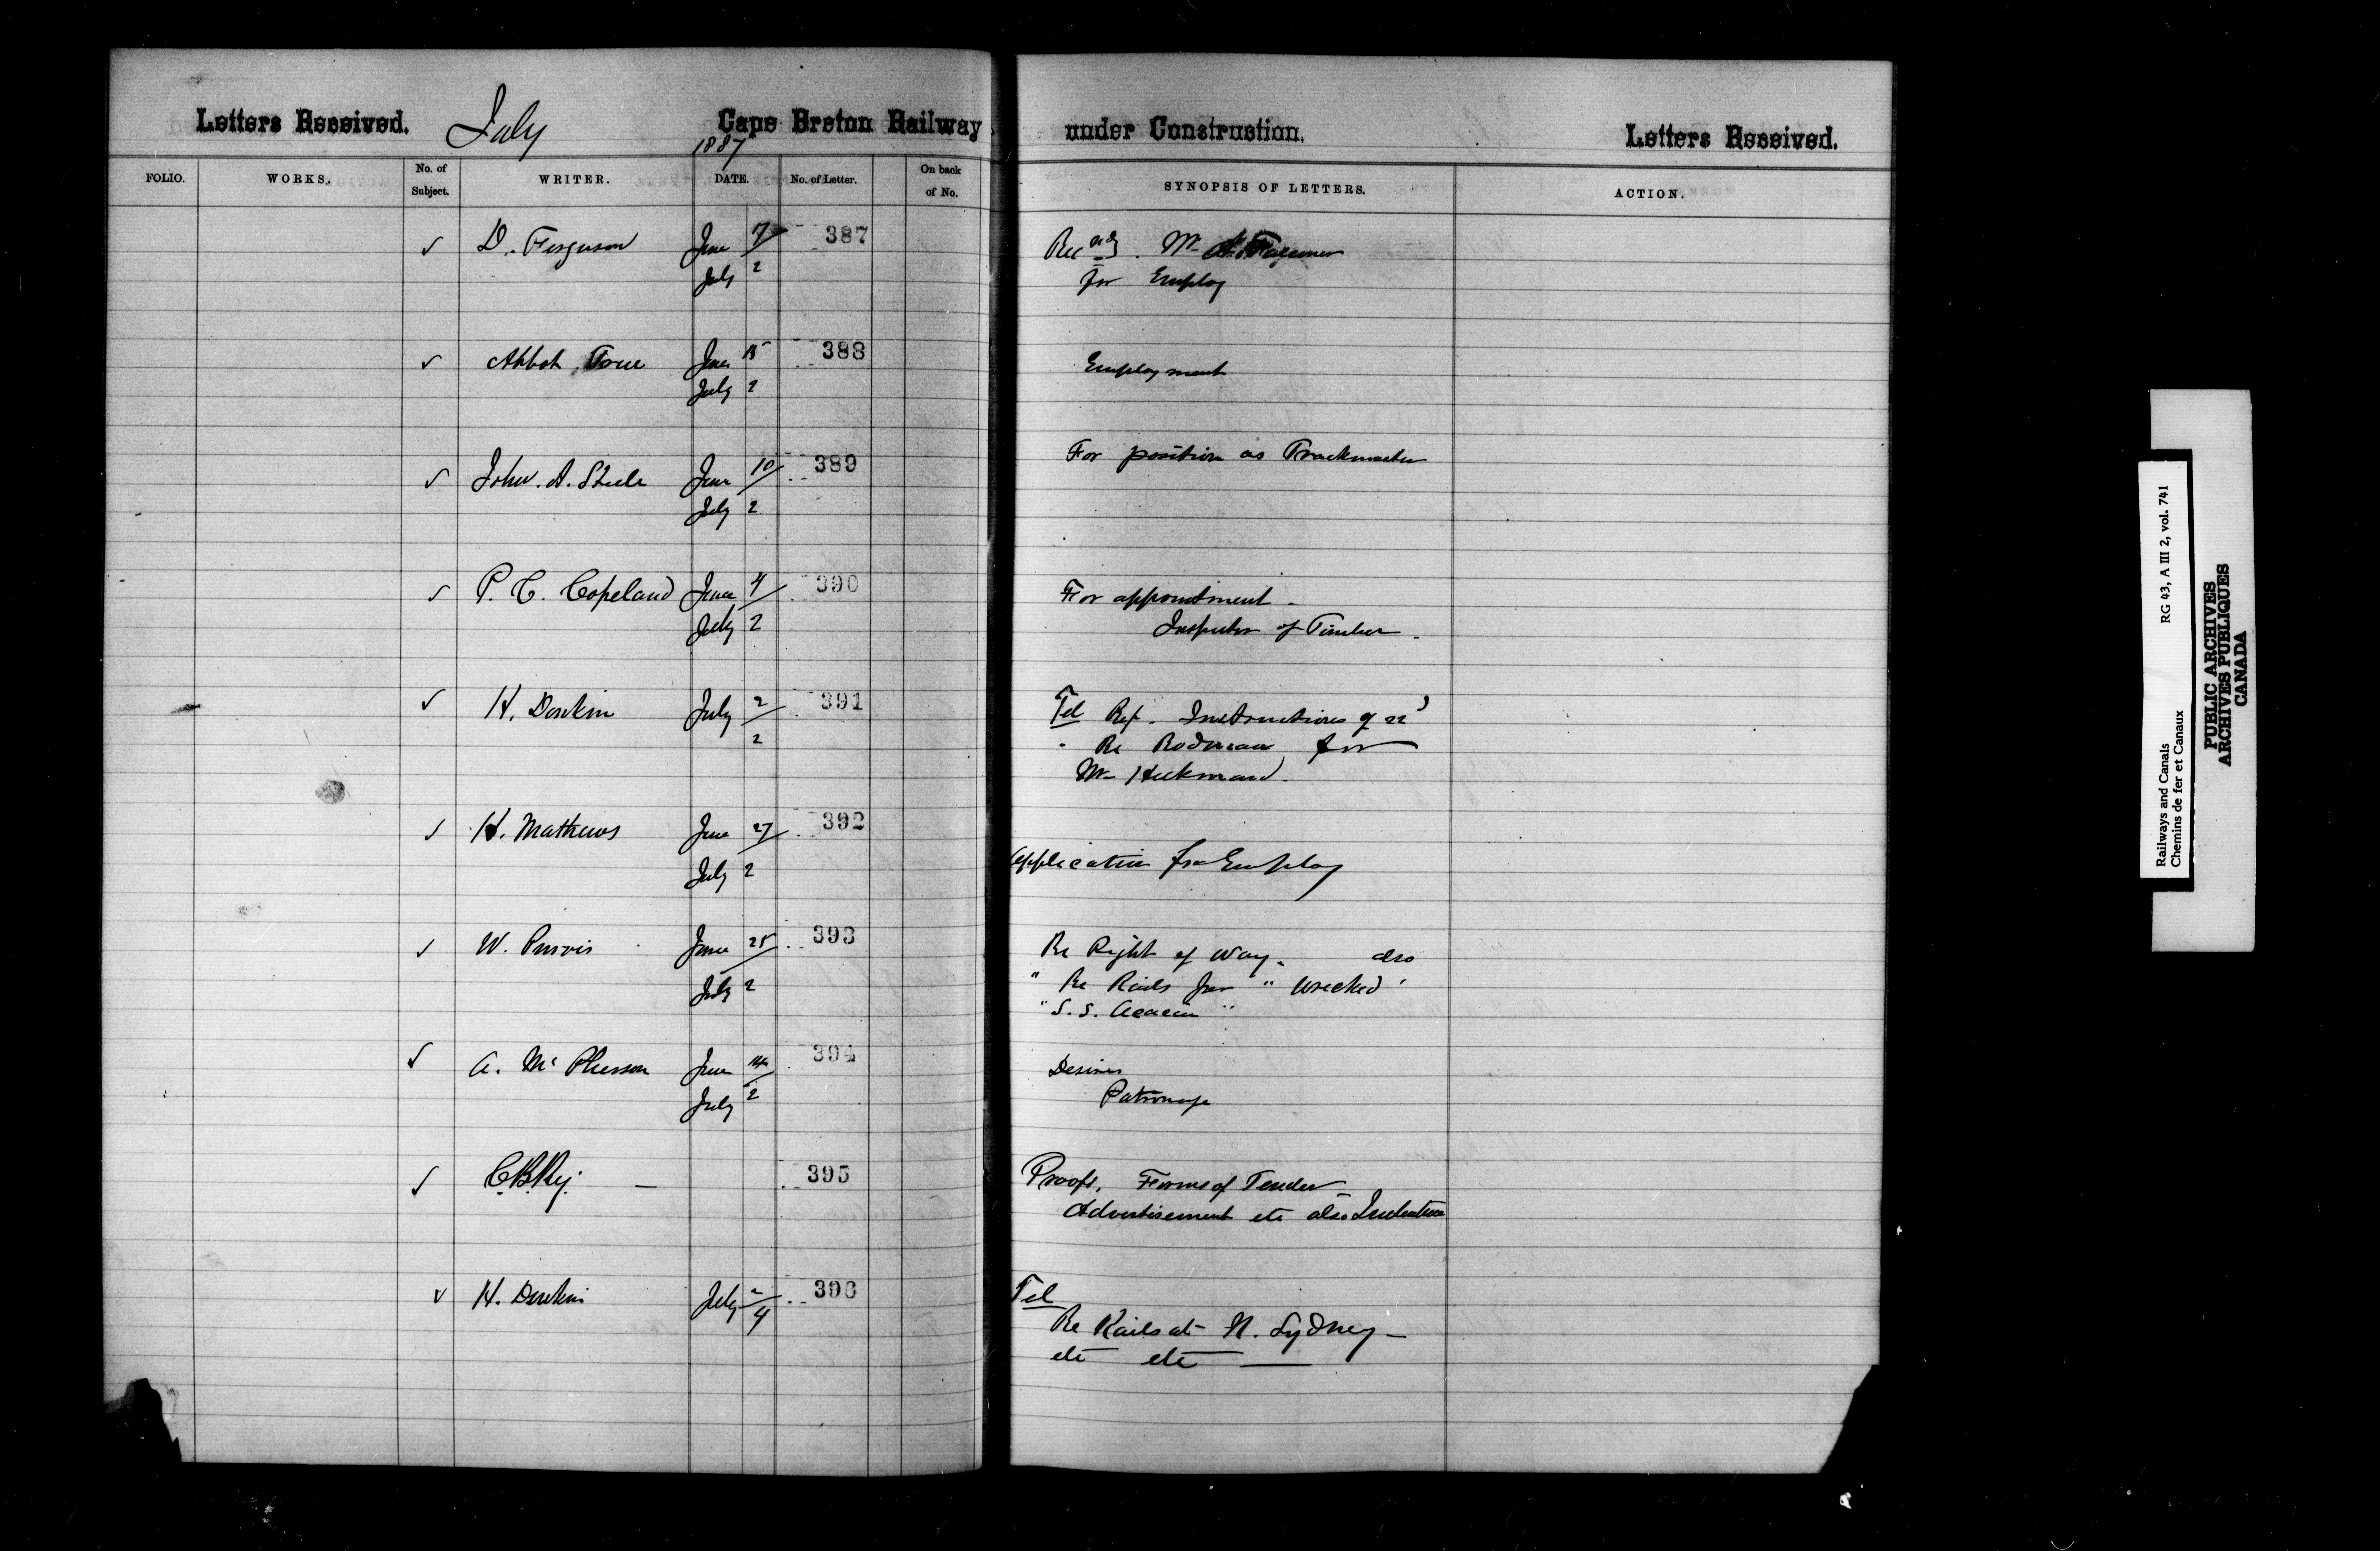 Letters Received. July Cape Breton Railway under Construction. Letters Received.
1887
FOLIO. WORKS. No. of Subject. WRITER. DATE. No. of Letter. On back of No. SYNOPSIS OF LETTERS. ACTION.
✓ D. Ferguson June 7 387 Mr
July 2 for Employ
✓ Abbot June 15 388 Employment
July 2
✓ John. A. Steele June 10 389 For position as Trackmaster
July 2
✓ P. C. Copeland June 4 390 For appointment -
July 2 Inspector of Timber -
✓ H. Donkin July 2 391 Tel Rep. Instructions of 22
2 Re Rodman for
Mr Hickman
✓ H. Mathews June 27 392
July 2 Application for Employ
✓ W. Purvis June 25 393 Re Right of Way. also
July 2 " Re Rails from " wrecked "
"S.S. Acacia"
✓ A. McPherson June 14 394 Desires
July 2 Patronage
✓ C.B.Ry. — 395 Proofs, Forms of Tender
Advertisement etc also Indenture
✓ H. Donkin July 2 396 Tel
4 Re Rails at N. Sydney —
etc etc —
Railways and Canals RG 43, A III 2, vol. 741
Chemins de fer et Canaux
PUBLIC ARCHIVES
ARCHIVES PUBLIQUES
CANADA